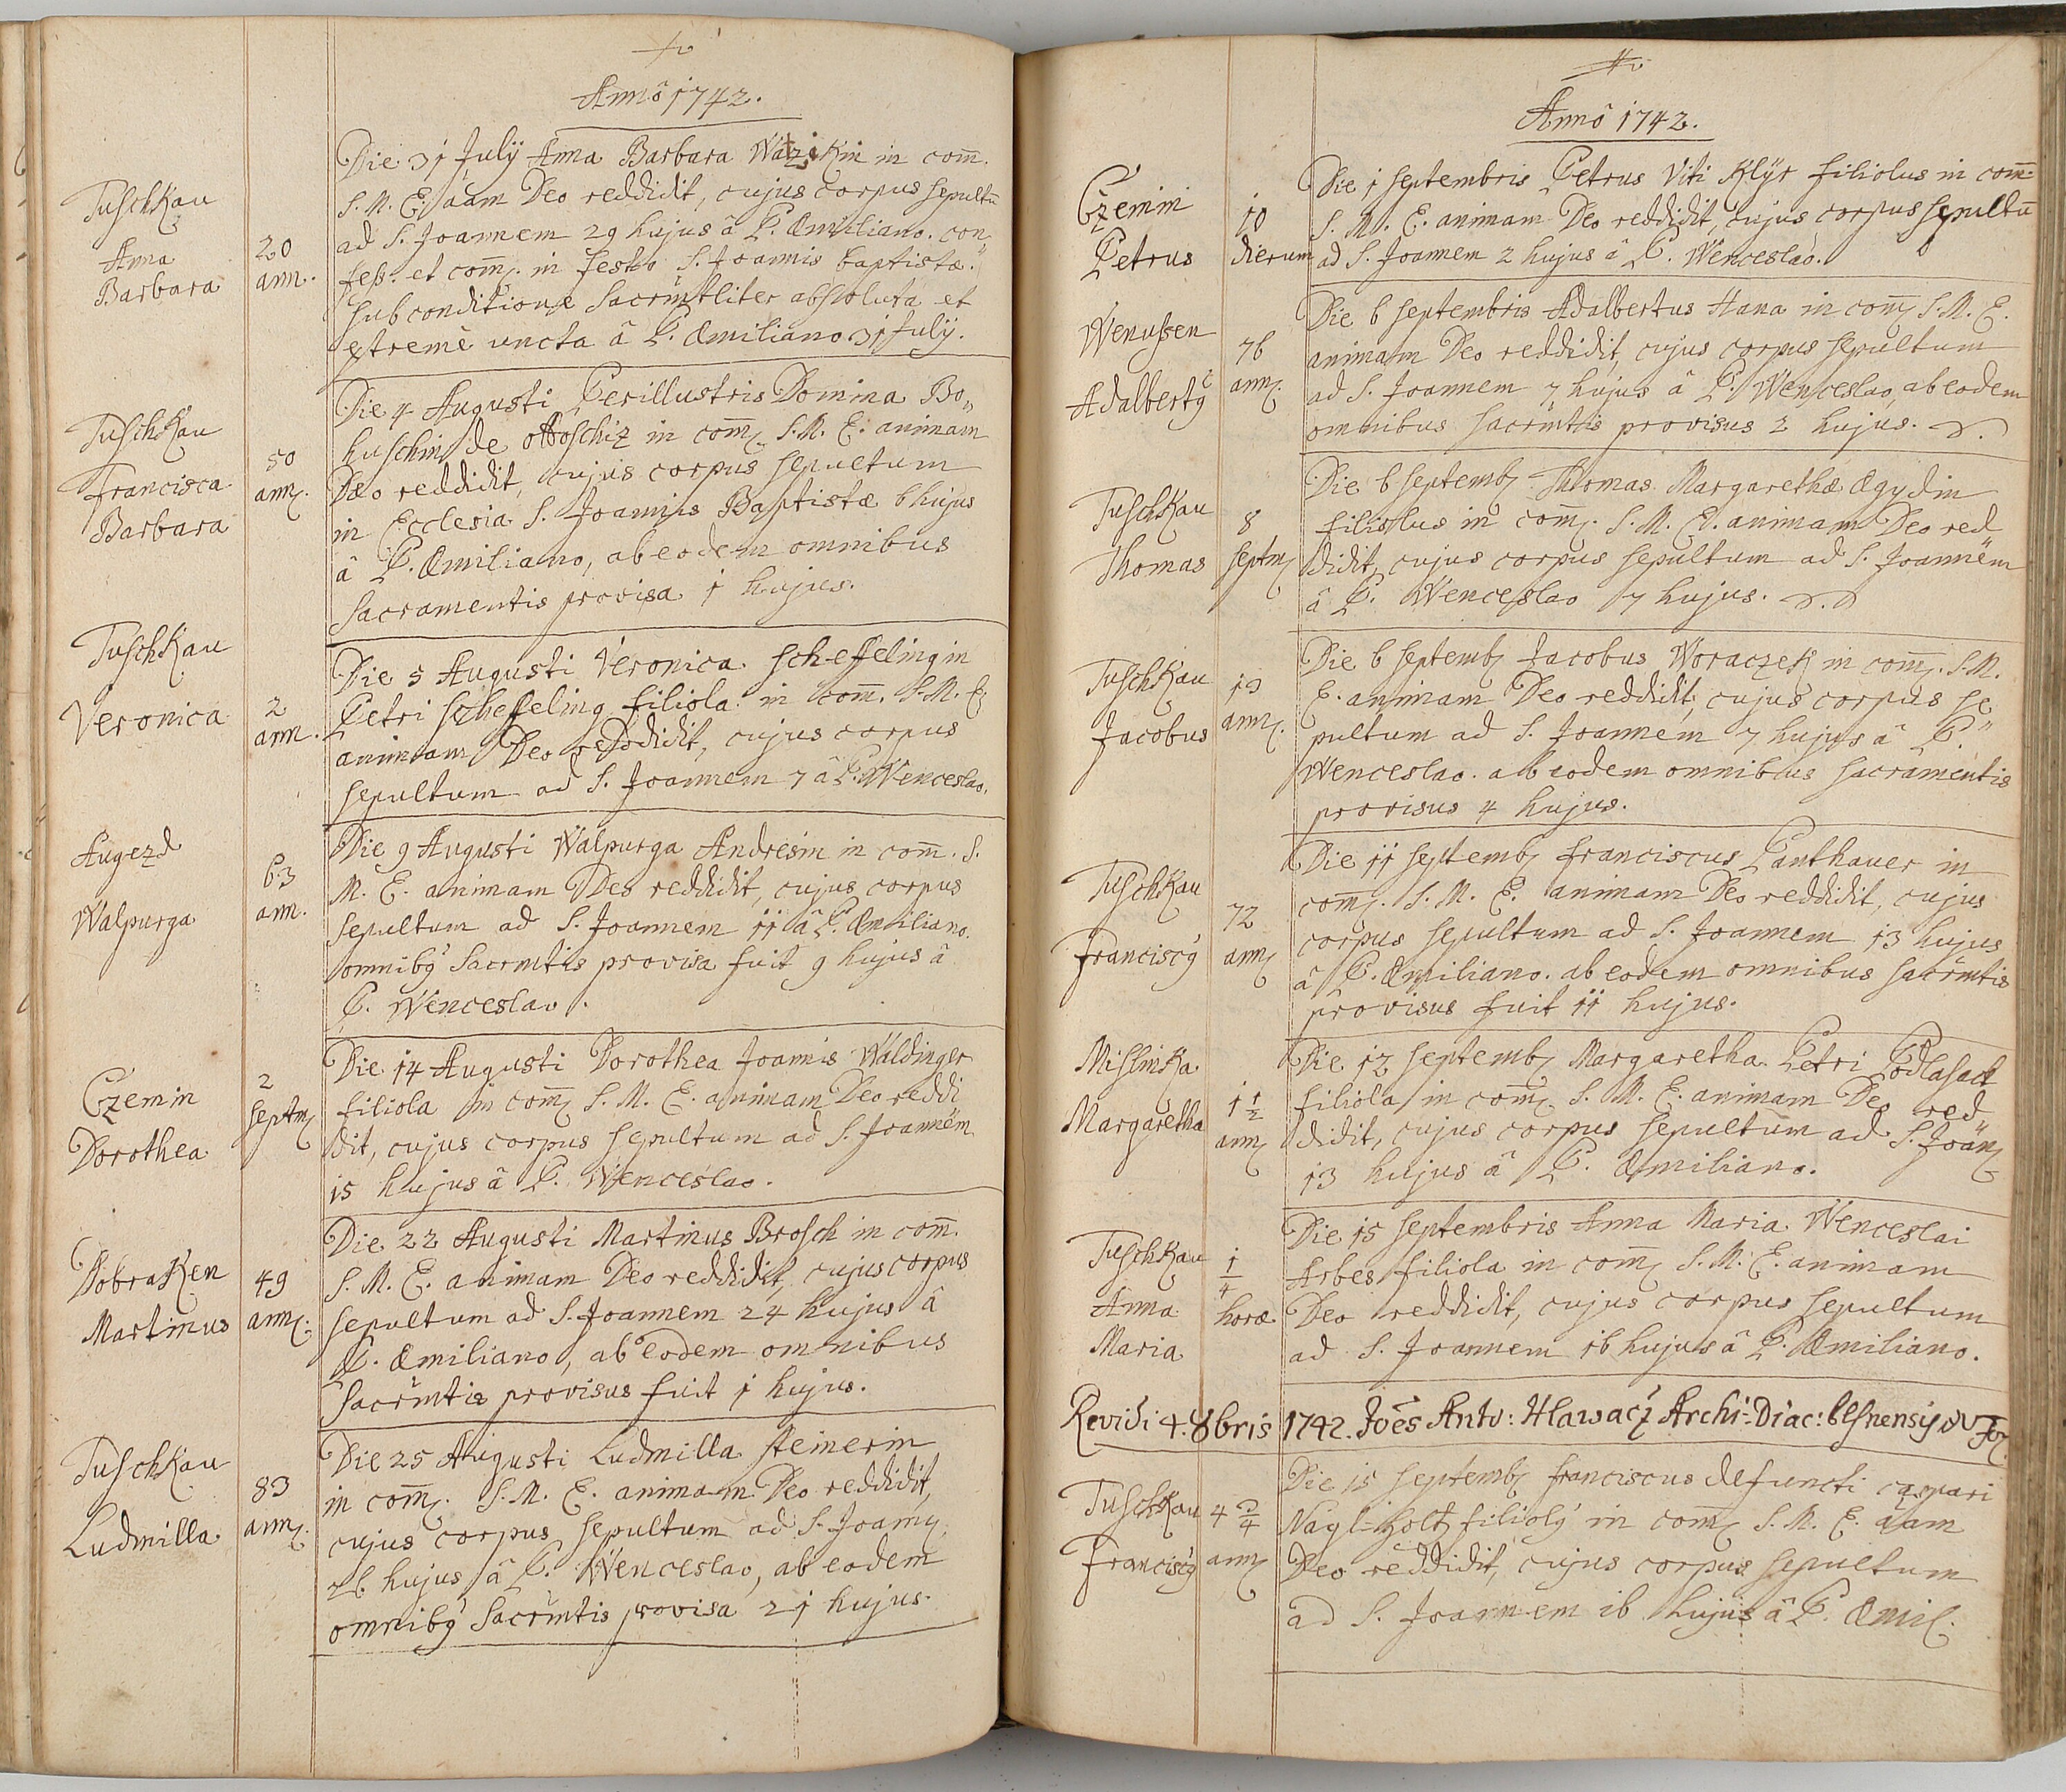 Annô 1742.
TuschKau
Anna
Barbara
20
ann.
Die 31 Julÿ Anna Barbara WaziKin in com̄.
S. M. E. aām Deo reddidit, cujus corpus sepultū
ad S. Joannem 29 hujus â P. Æmiliano. con„
fess. et com̄. in festo S. Joannis baptistæ.
sub conditione Sacrm̄tliter absoluta et
extremè uncta â P. Æmiliano 31 Julÿ.
TuschKau
Francisca
Barbara
50
ann.
Die 4 Augusti Perillustris Domina Bo„
huschin de ottoschiz in com̄. S. M. E. animam
Deo reddidit, cujus corpus sepultum
in Ecclesia S. Joannis Baptistæ 6 hujus
â P. Æmiliano, ab eodem omnibus
Sacramentis provisa 1 hujus.
TuschKau
Veronica
2
ann.
Die 5 Augusti Veronica scheffelingin
Petri scheffeling filiola in com̄. S. M. E.
animam Deo reddidit, cujus corpus
sepultum ad S. Joannem 7 â P. Wenceslao.
Augezd
Walpurga
63
ann.
Die 9 Augusti Walpurga Andresin in com̄. S.
M. E. animam Deo reddidit, cujus corpus
sepultum ad S. Joannem 11 â P. Æmiliano.
omnibꝰ Sacrm̄tis provisa fuit 9 hujus â
P. Wenceslao.
Czemin
Dorothea
2
septm.
Die 14 Augusti Dorothea Joannis Waldinger
filiola in com̄. S. M. E. animam Deo reddi
dit, cujus corpus sepultum ad S. Joannem
15 hujus â P. Wenceslao.
DobraKen
Martinus
49
ann.
Die 22 Augusti Martinus Brosch in com̄.
S. M. E. animam Deo reddidit, cujus corpus
sepultum ad S. Joannem 24 hujus â
P. Æmiliano, ab eodem omnibus
Sacrm̄tis provisus fuit 1 hujus.
TuschKau
Ludmilla
83
ann.
Die 25 Augusti Ludmilla steinerin
in com̄. S. M. E. animam Deo reddidit,
cujus corpus sepultum ad S. Joann.
26. hujus â P. Wenceslao, ab eodem
omnibꝰ Sacrm̄tis provisa 21 hujus.
Annô 1742.
Czemin
Petrus
10
dierum
Die 1 septembris Petrus Viti Klÿr filiolus in com̄:
S. M. E. animam Deo reddidit, cujus corpus sepultū
ad S. Joannem 2 hujus â P. Wenceslao.
Wenussen
Adalbertꝰ
76
ann.
Die 6 septembris Adalbertus Hana in com̄. S. M. E.
animam Deo reddidit, cujus corpus sepultum
ad S. Joannem 7 hujus â P. Wenceslao, ab eodem
omnibus sacrm̄tis provisus 2 hujus.
TuschKau
Thomas
8
septm.
Die 6 septemb. Thomas Margarethæ Ægydin
filiolus in com̄. S. M. E. animam Deo red
didit, cujus corpus sepultum ad S. Joannem
â P. Wenceslao 7 hujus.
TuschKau
Jacobus
19
ann.
Die 6 septemb. Jacobus WoraczeK in com̄. S. M.
E. animam Deo reddidit, cujus corpus se„
pultum ad S. Joannem 7 hujus â P.
Wenceslao. ab eodem omnibus sacramentis
provisus 4 hujus.
TuschKau
Franciscꝰ
72
ann.
Die 11 septemb. franciscus Panthauer in
com̄. S. M. E. animam Deo reddidit, cujus
corpus sepultum ad S. Joannem 13 hujus
â P. Æmiliano. ab eodem omnibus sacrm̄tis
provisus fuit 11 hujus.
MislinKa
Margaretha
1 1/2
ann.
Die 12 septemb. Margaretha Petri Podlasack
filiola in com̄. S. M. E. animam Deo red
didit, cujus corpus sepultum ad S. Joañ.
13 hujus â P. Æmiliano.
TuschKau
Anna
Maria
1/4
horæ
Die 15 septembris Anna Maria Wenceslai
Arbes filiola in com̄. S. M. E. animam
Deo reddidit, cujus corpus sepultum
ad S. Joannem 16 hujus â P. Æmiliano.
Revidi 4. 8bris 1742. Joēs Antō: Hlawacz Archi-Diac: blsnensis
TuschKau
Franciscꝰ
4 3/4
ann.
Die 15 septemb. franciscus defuncti caspari
Nagl-holtz filiolꝰ in com̄. S. M. E. aām
Deo reddidit, cujus corpus sepultum
ad S. Joannem 16 hujus â P. Æmil.